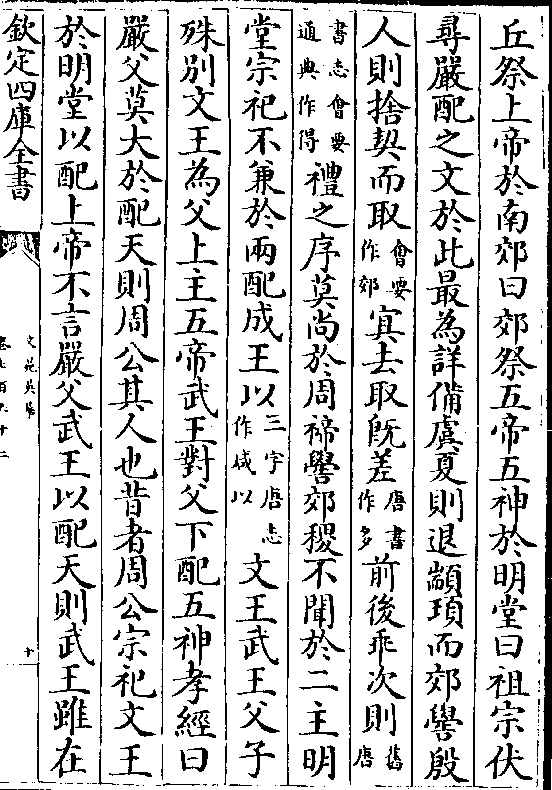 丘祭上帝於南郊曰郊祭五帝五神於明堂曰祖宗伏
尋嚴配之文於此最為詳備虞夏則退顓頊而郊嚳殷
人則捨契而取會要作郊㝠去取旣差唐書作多前後乖次則舊唐
書志會要通典作得禮之序莫尚於周禘嚳郊稷不聞於二主明
堂宗祀不兼於兩配成王以三字唐志作咸以文王武王父子
殊別文王為父上主五帝武王對父下配五神孝經曰
嚴父莫大於配天則周公其人也昔者周公宗祀文王
於明堂以配上帝不言嚴父武王以配天則武王雖在
欽定四庫全書
文苑英華
十